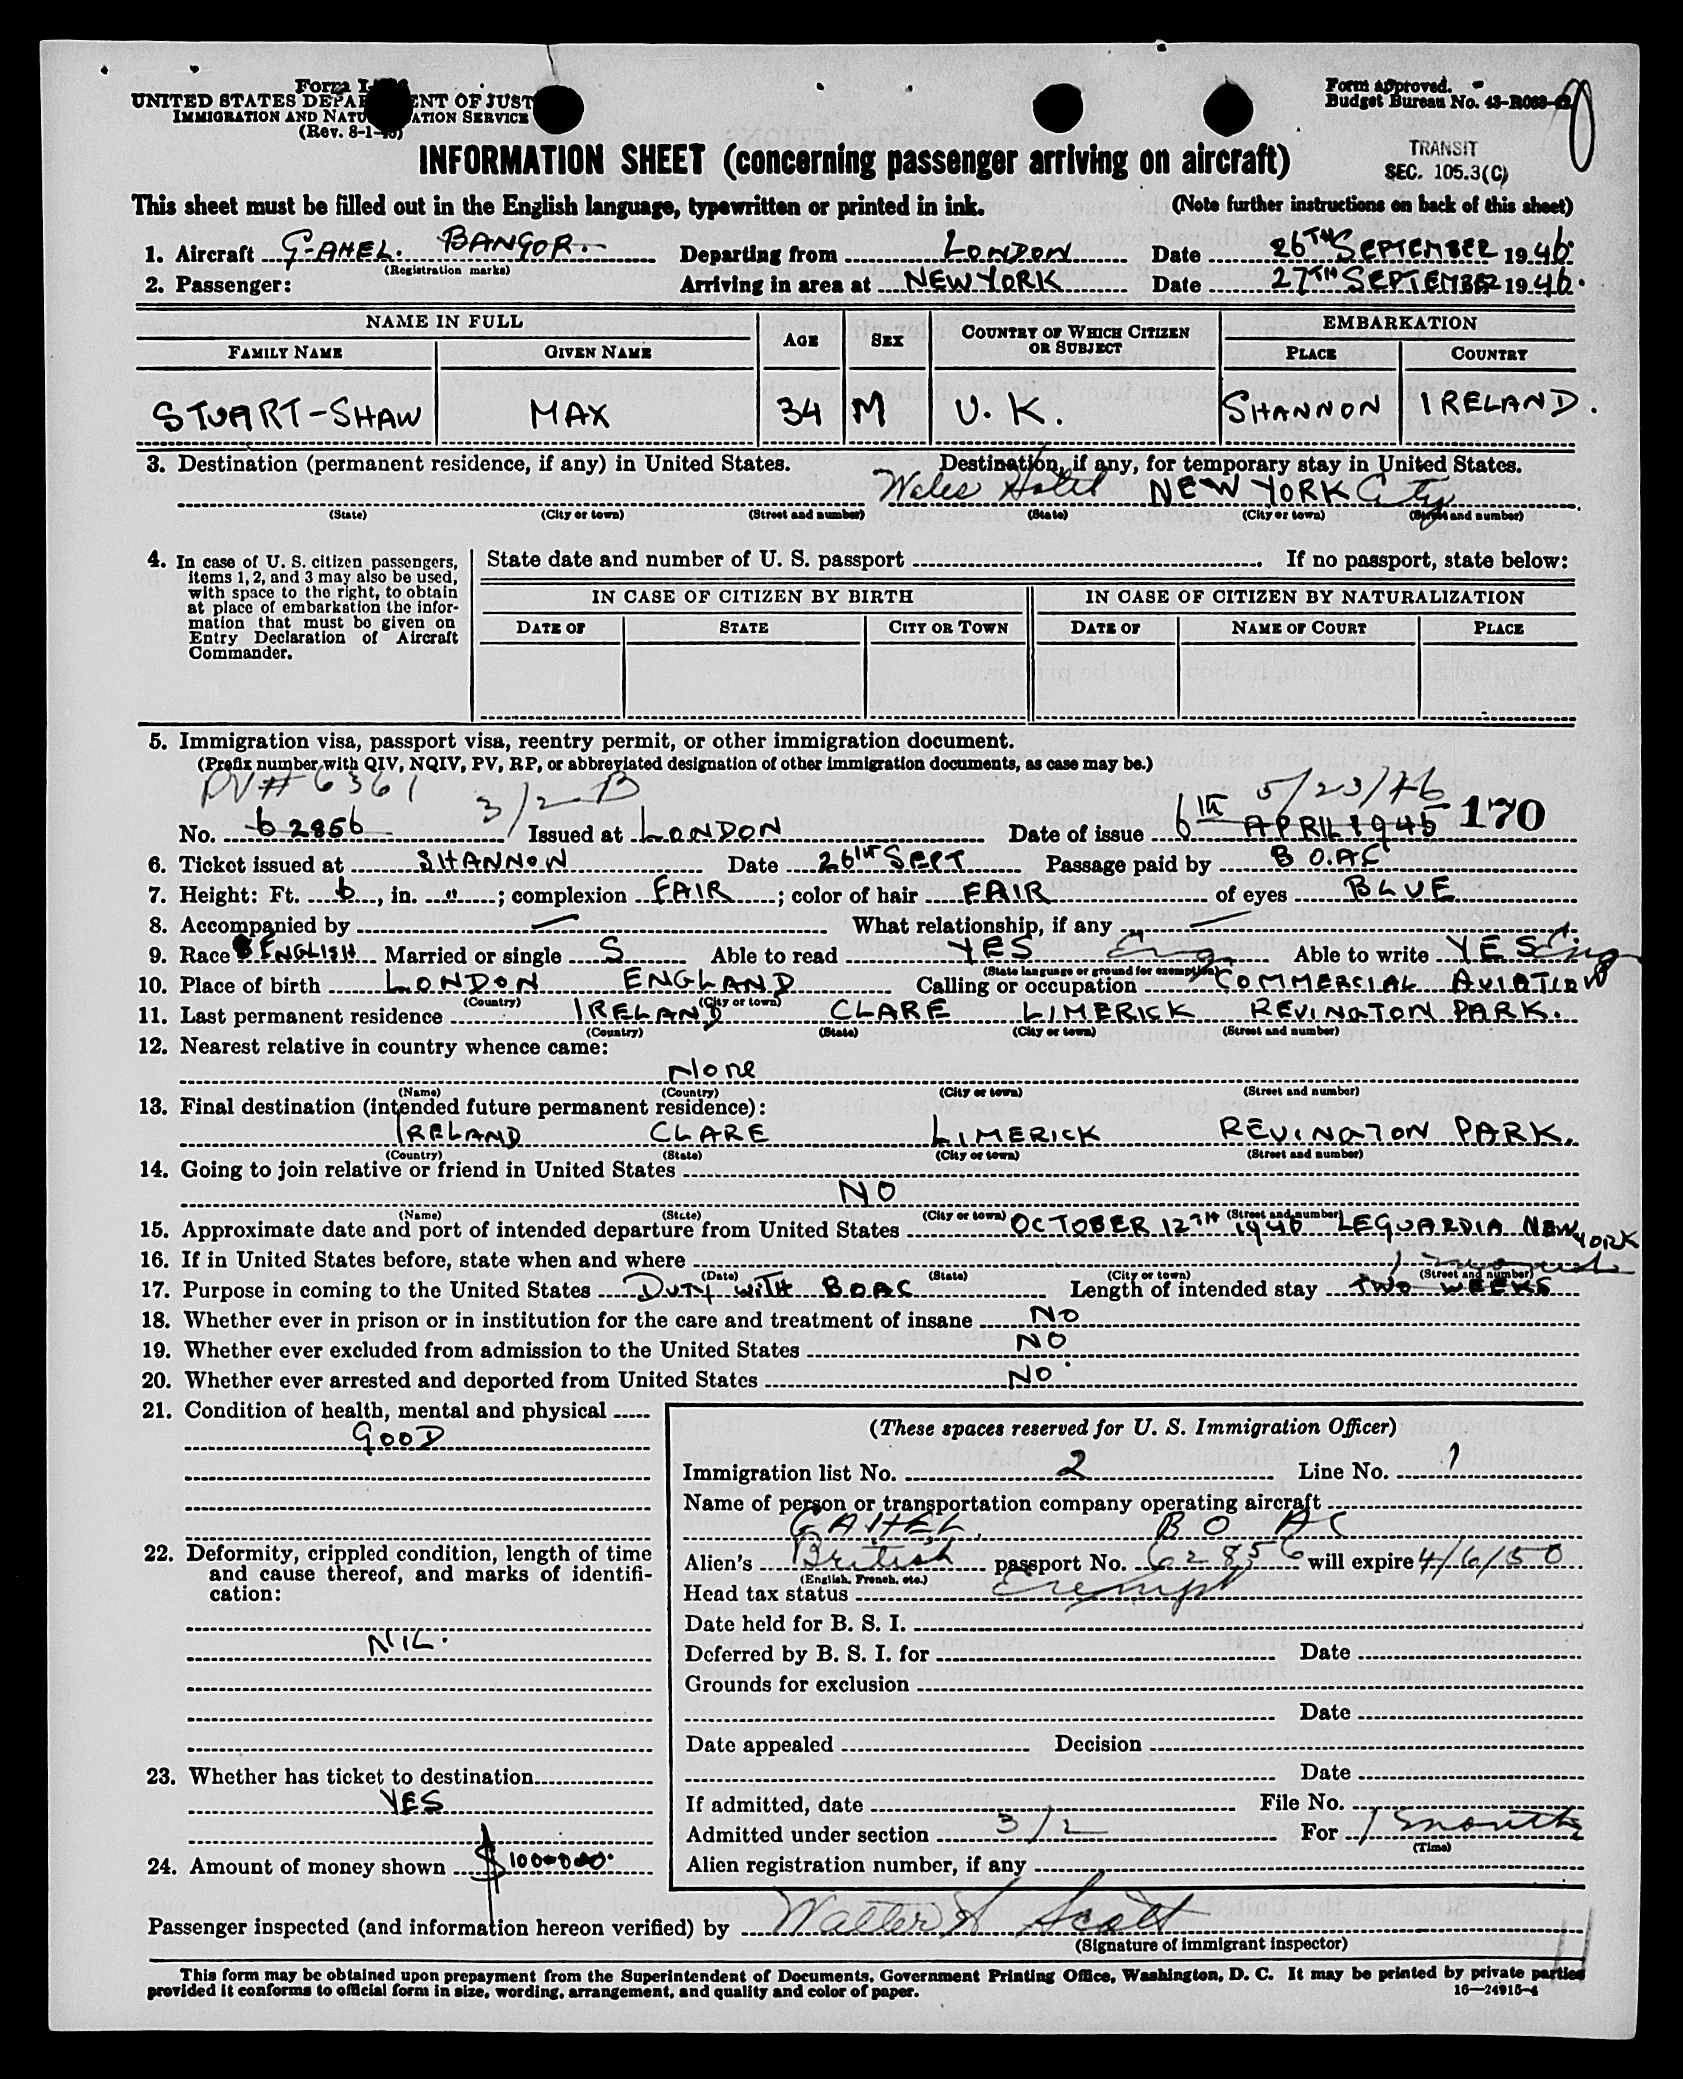 UNITED STATES DEPARTMENT OF JUST
IMMIGRATION AND NATURALIZATION SERVICE
(Rev. 8-1-45)
Form approved.
Budget Bureau No. 43-R063-42
TRANSIT
SEC. 105.3(C)
INFORMATION SHEET (concerning passenger arriving on aircraft)
This sheet must be filled out in the English language, typewritten or printed in ink. (Note further instructions on back of this sheet)
1. Aircraft G-AHEL. BANGOR. Departing from LONDON Date 26TH SEPTEMBER 1946.
(Registration marks)
2. Passenger: Arriving in area at NEW YORK Date 27TH SEPTEMBER 1946.
NAME IN FULL AGE SEX COUNTRY OF WHICH CITIZEN OR SUBJECT EMBARKATION
FAMILY NAME GIVEN NAME PLACE COUNTRY
STUART-SHAW MAX 34 M U.K. SHANNON IRELAND.
3. Destination (permanent residence, if any) in United States. Destination, if any, for temporary stay in United States.
Wales Hotel NEW YORK City
(State) (City or town) (Street and number) (State) (City or town) (Street and number)
4. In case of U. S. citizen passengers,
items 1, 2, and 3 may also be used,
with space to the right, to obtain
at place of embarkation the infor-
mation that must be given on
Entry Declaration of Aircraft
Commander.
State date and number of U. S. passport If no passport, state below:
IN CASE OF CITIZEN BY BIRTH IN CASE OF CITIZEN BY NATURALIZATION
DATE OF STATE CITY OR TOWN DATE OF NAME OF COURT PLACE
5. Immigration visa, passport visa, reentry permit, or other immigration document.
(Prefix number with QIV, NQIV, PV, RP, or abbreviated designation of other immigration documents, as case may be.)
PV# 6361 3/2 B 5/23/46 170
No. 62856 Issued at LONDON Date of issue 6th APRIL 1945
6. Ticket issued at SHANNON Date 26th SEPT Passage paid by B O.AC
7. Height: Ft. 6, in. "; complexion FAIR; color of hair FAIR of eyes BLUE
8. Accompanied by — What relationship, if any —
9. Race ENGLISH Married or single S Able to read YES Eng Able to write YES Eng
(State language or ground for exemption)
10. Place of birth LONDON ENGLAND Calling or occupation COMMERCIAL AVIATION
(Country) (City or town)
11. Last permanent residence IRELAND CLARE LIMERICK REVINGTON PARK.
(Country) (State) (City or town) (Street and number)
12. Nearest relative in country whence came:
None
(Name) (Country) (City or town) (Street and number)
13. Final destination (intended future permanent residence):
IRELAND CLARE LIMERICK REVINGTON PARK.
(Country) (State) (City or town) (Street and number)
14. Going to join relative or friend in United States
NO
(Name) (State) (City or town) (Street and number)
15. Approximate date and port of intended departure from United States OCTOBER 12TH 1946 LEGUARDIA NEW YORK
16. If in United States before, state when and where
(Date) (State) (City or town) (Street and number)
17. Purpose in coming to the United States DUTY WITH BOAC Length of intended stay TWO WEEKS
18. Whether ever in prison or in institution for the care and treatment of insane NO
19. Whether ever excluded from admission to the United States NO
20. Whether ever arrested and deported from United States NO
21. Condition of health, mental and physical
GOOD
22. Deformity, crippled condition, length of time
and cause thereof, and marks of identifi-
cation:
NIL.
23. Whether has ticket to destination
YES
24. Amount of money shown $
(These spaces reserved for U. S. Immigration Officer)
Immigration list No. 2 Line No. 1
Name of person or transportation company operating aircraft
GAHEL. BO AC
Alien's British passport No. 62856 will expire 4/6/50
(English, French, etc.)
Head tax status Exempt
Date held for B. S. I.
Deferred by B. S. I. for Date
Grounds for exclusion
Date
Date appealed Decision
Date
If admitted, date File No.
Admitted under section 3/2 For 1 months
(Time)
Alien registration number, if any
Passenger inspected (and information hereon verified) by Walter Scott
(Signature of immigrant inspector)
This form may be obtained upon prepayment from the Superintendent of Documents, Government Printing Office, Washington, D. C. It may be printed by private parties
provided it conforms to official form in size, wording, arrangement, and quality and color of paper.
16—24915-4